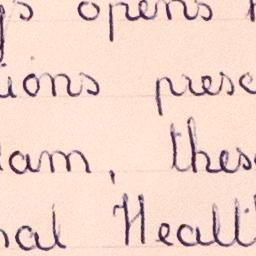 gs opens
ions presc
lam, thes
nal Healt